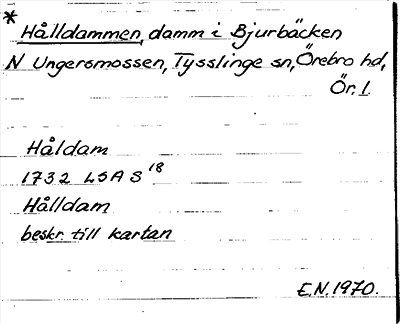 *
Hålldammen, damm i Bjurbäcken
N Ungersmossen, Tysslinge sn, Örebro hd,
Ör. l.
Håldam
1732 LSA S 18
Hålldam
beskr. till kartan
E.N. 1970.